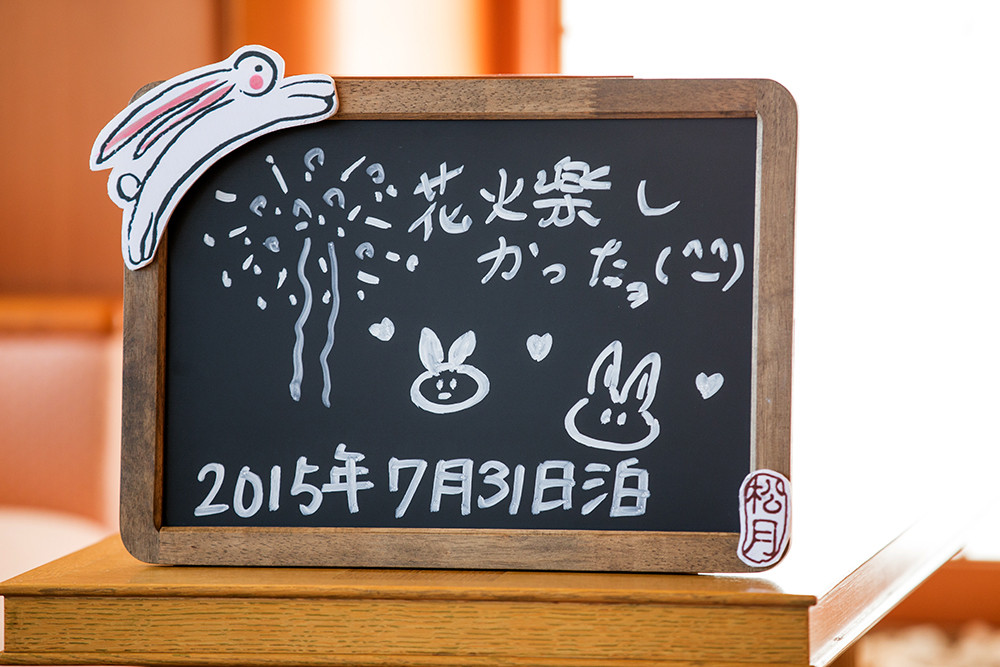 花火楽し
かったョ(^^)
2015年7月31日泊
松月